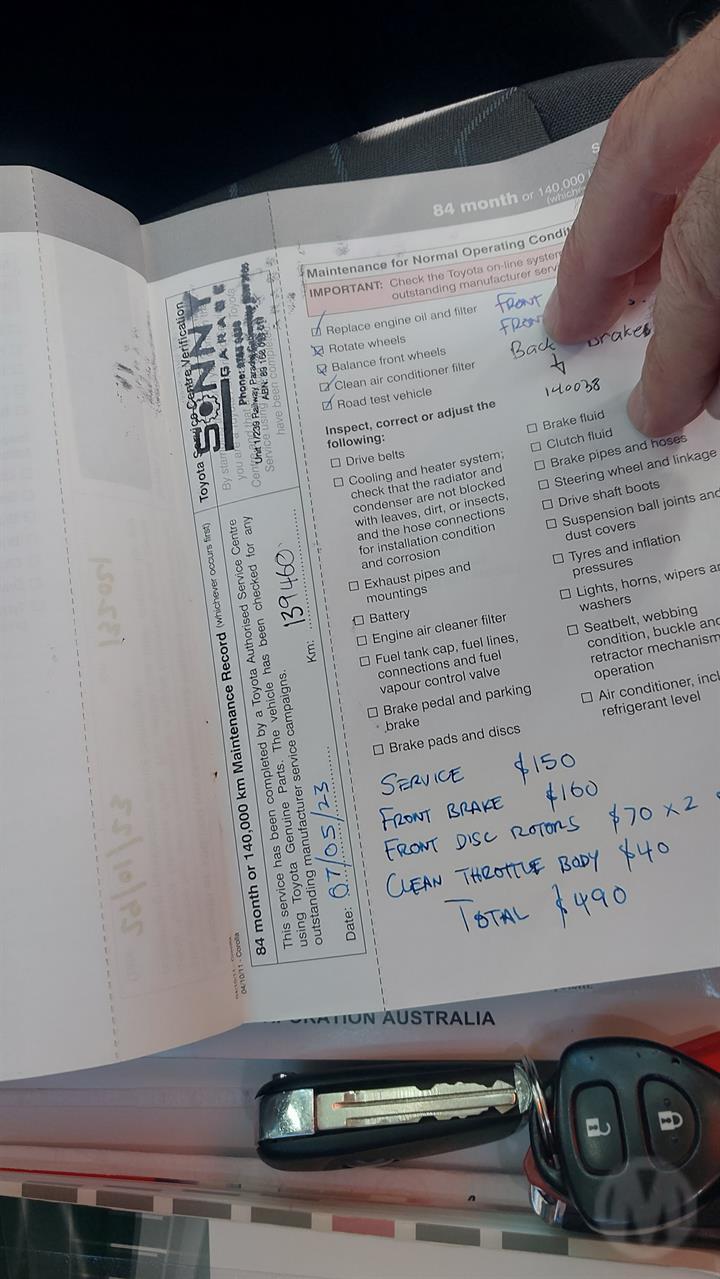 84 month or 140,000
Maintenance for Normal Operating Condit
IMPORTANT: Check the Toyota on-line system
outstanding manufacturer serv
Replace engine oil and filter
Rotate wheels
Balance front wheels
Clean air conditioner filter
Road test vehicle
FRONT
Back Brakes
140038
Inspect, correct or adjust the
following:
Drive belts
Cooling and heater system;
check that the radiator and
condenser are not blocked
with leaves, dirt, or insects,
and the hose connections
for installation condition
and corrosion
Exhaust pipes and
mountings
Battery
Engine air cleaner filter
Fuel tank cap, fuel lines,
connections and fuel
vapour control valve
Brake pedal and parking
brake
Brake pads and discs
Brake fluid
Clutch fluid
Brake pipes and hoses
Steering wheel and linkage
Drive shaft boots
Suspension ball joints and
dust covers
Tyres and inflation
pressures
Lights, horns, wipers an
washers
Seatbelt, webbing
condition, buckle and
retractor mechanism
operation
Air conditioner, incl
refrigerant level
SERVICE $150
FRONT BRAKE $160
FRONT DISC ROTORS $70 x 2
CLEAN THROTTLE BODY $40
TOTAL $490
84 month or 140,000 km Maintenance Record (whichever occurs first)
This service has been completed by a Toyota Authorised Service Centre
using Toyota Genuine Parts. The vehicle has been checked for any
outstanding manufacturer service campaigns.
Date: 07/05/23 Km: 139460
04/10/11 - Corolla
Toyota Service Centre Verification
SONNY
GARAGE
have been comple
ORATION AUSTRALIA
M